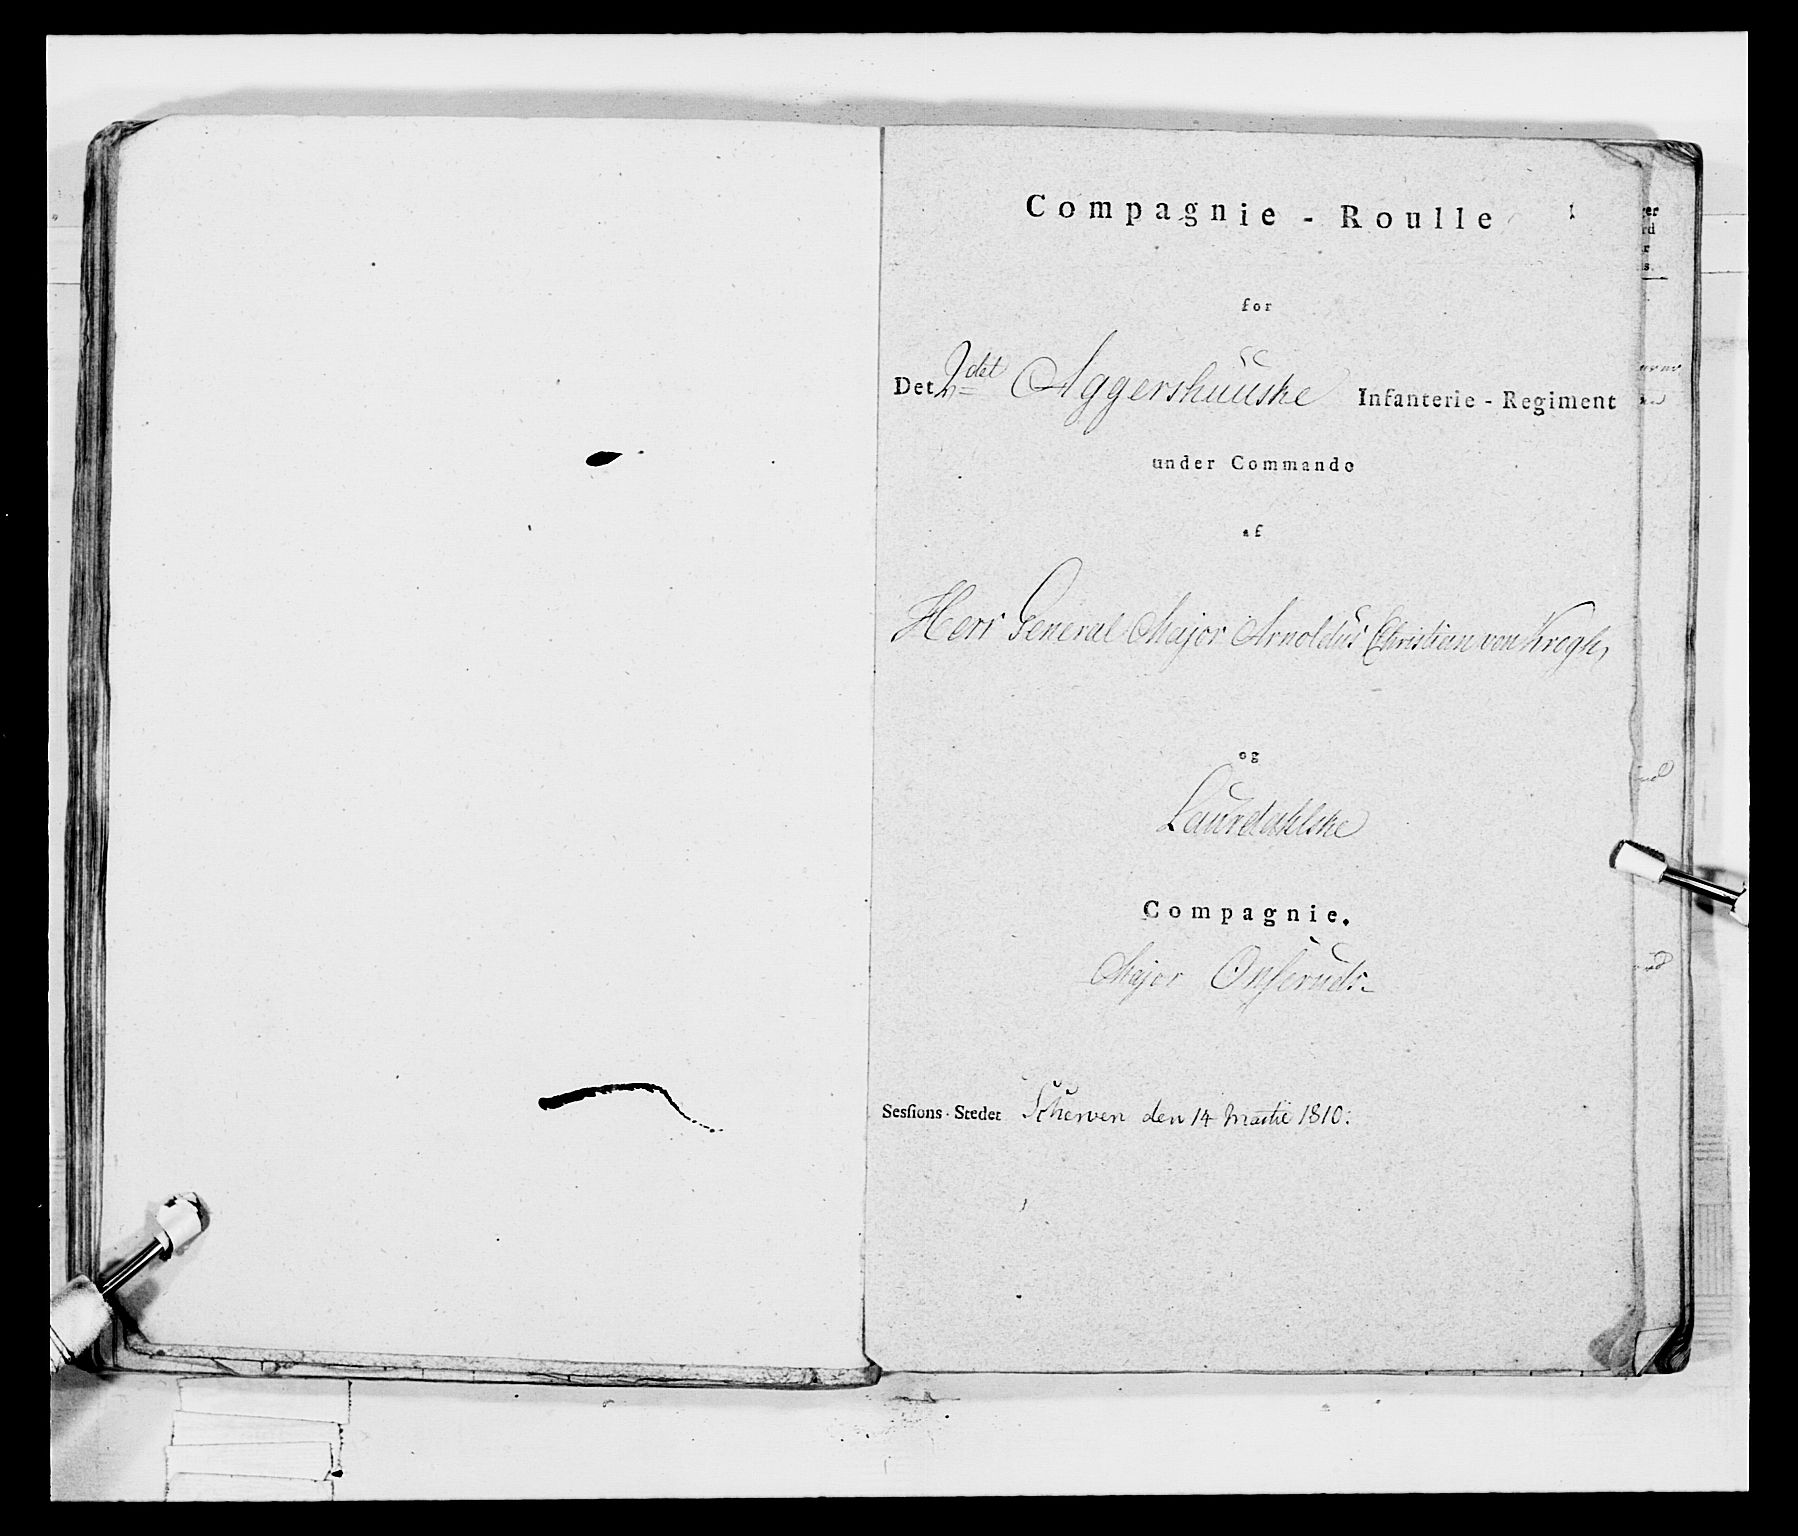 Compagnie - Roulle
1
for
Det 2det Aggershuuske Infanterie - Regiment
under Commando
af
Herr General Major Arnoldus Christian von Krogh,
og
Laurdahlske
Compagnie.
Major Onserud's
Sesſions-Stedet Scherven den 14 Martii 1810.